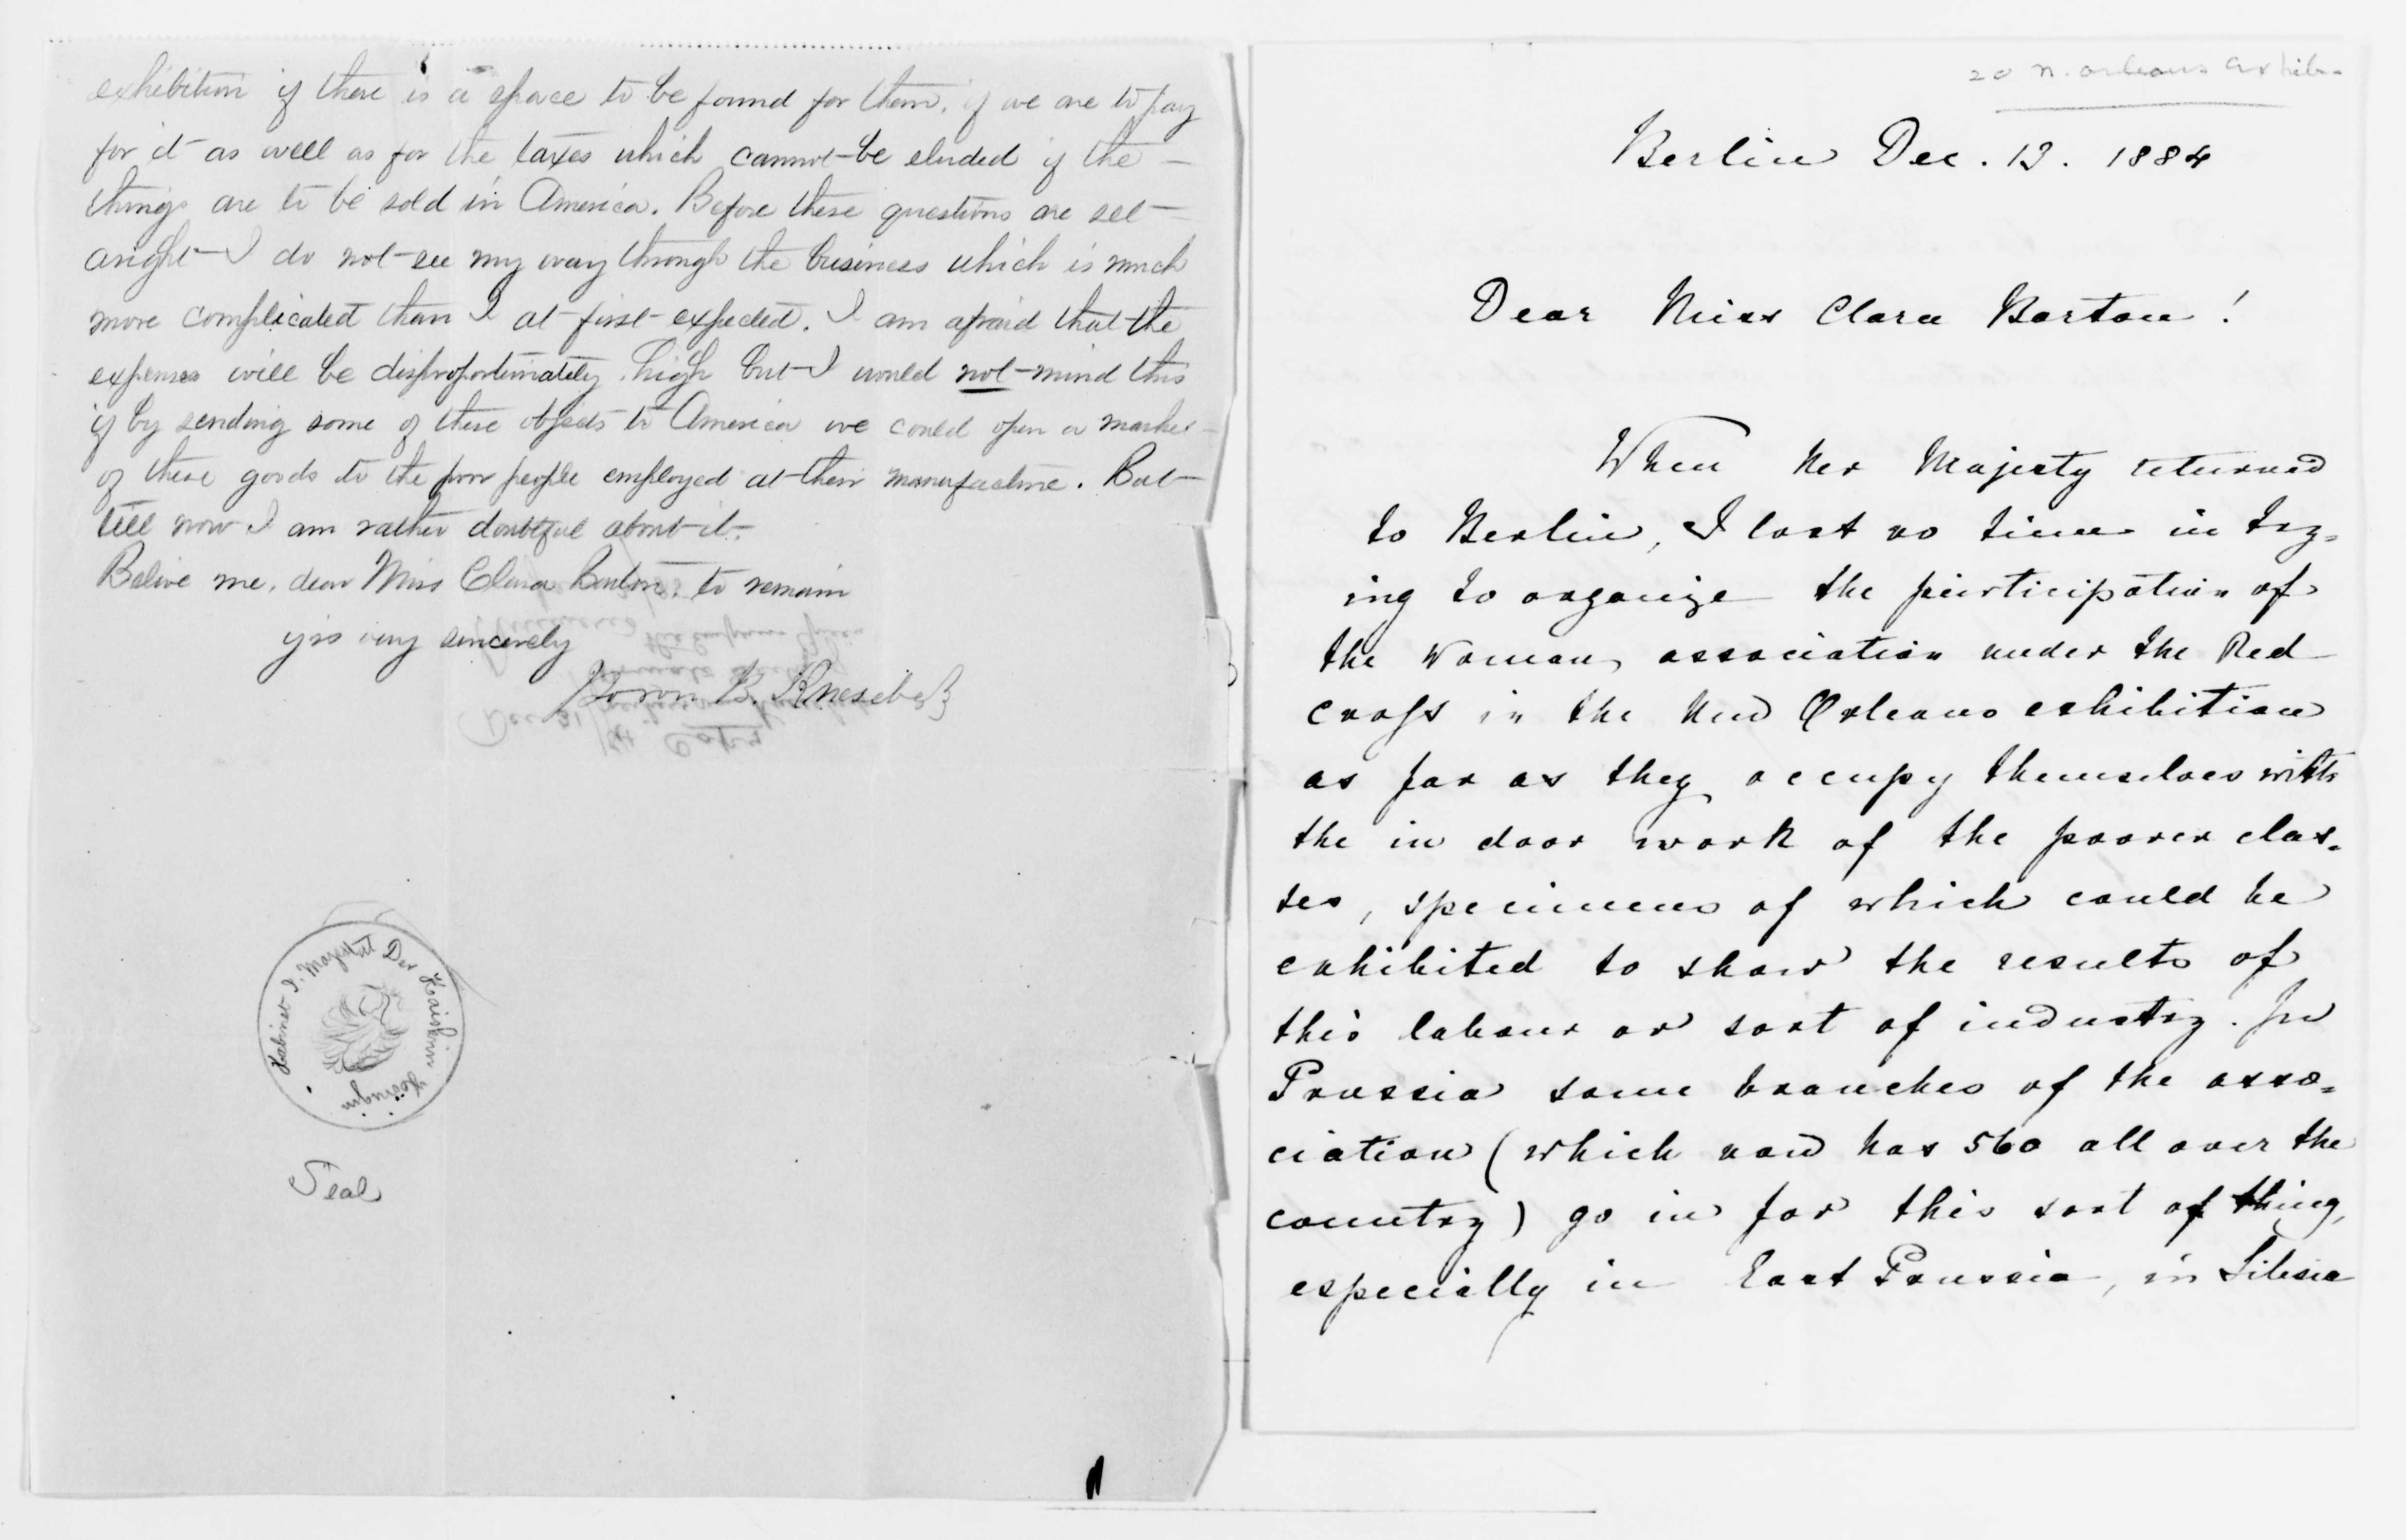 exhibition if there is a space to be found for them, if we are to pay
for it as well as for the taxes which cannot be eluded if the
things are to be sold in America. Before these questions are set
aright I do not see my way through the business which is much
more complicated than I at first expected. I am afraid that the
expenses will be disproportimately high but I would not mind this
if by sending some of these objects to America we could open a market
of these goods to the poor people employed at their manufacture. But
till now I am rather doubtful about it.
Belive me, dear Miss Clara Barton, to remain
yrs very sincerely
B. Knesebeck
Kabinet I. Majestät Der Kaiserin Königin
Seal
20 N. Orleans Exhib.
Berlin Dec. 13. 1884
Dear Miss Clara Barton!
When Her Majesty returned
to Berlin, I lost no time in try=
ing to organize the participation of
the Woman association under the Red
cross in the New Orleans exhibition
as far as they occupy themselves with
the in door work of the poorer clas=
ses, specimens of which could be
exhibited to show the results of
this labour or sort of industry. In
Prussia some branches of the asso=
ciation (which now has 560 all over the
country) go in for this sort of thing,
especially in East Prussia, in Silesia